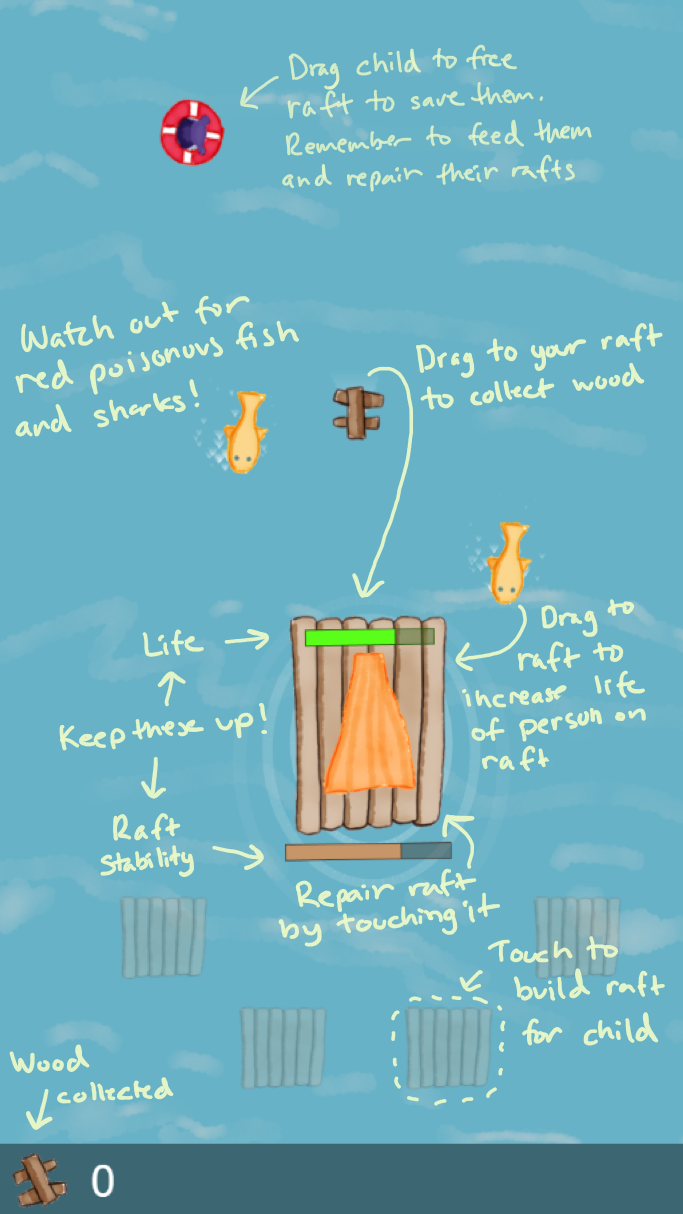 Drag child to free
raft to save them.
Remember to feed them
and repair their rafts
Watch out for
red poisonous fish
and sharks!
Drag to your raft
to collect wood
Drag to
raft to
increase life
of person on
raft
Life
Keep these up!
Raft
Stability
Repair raft
by touching it
Touch to
build raft
for child
Wood
collected
0